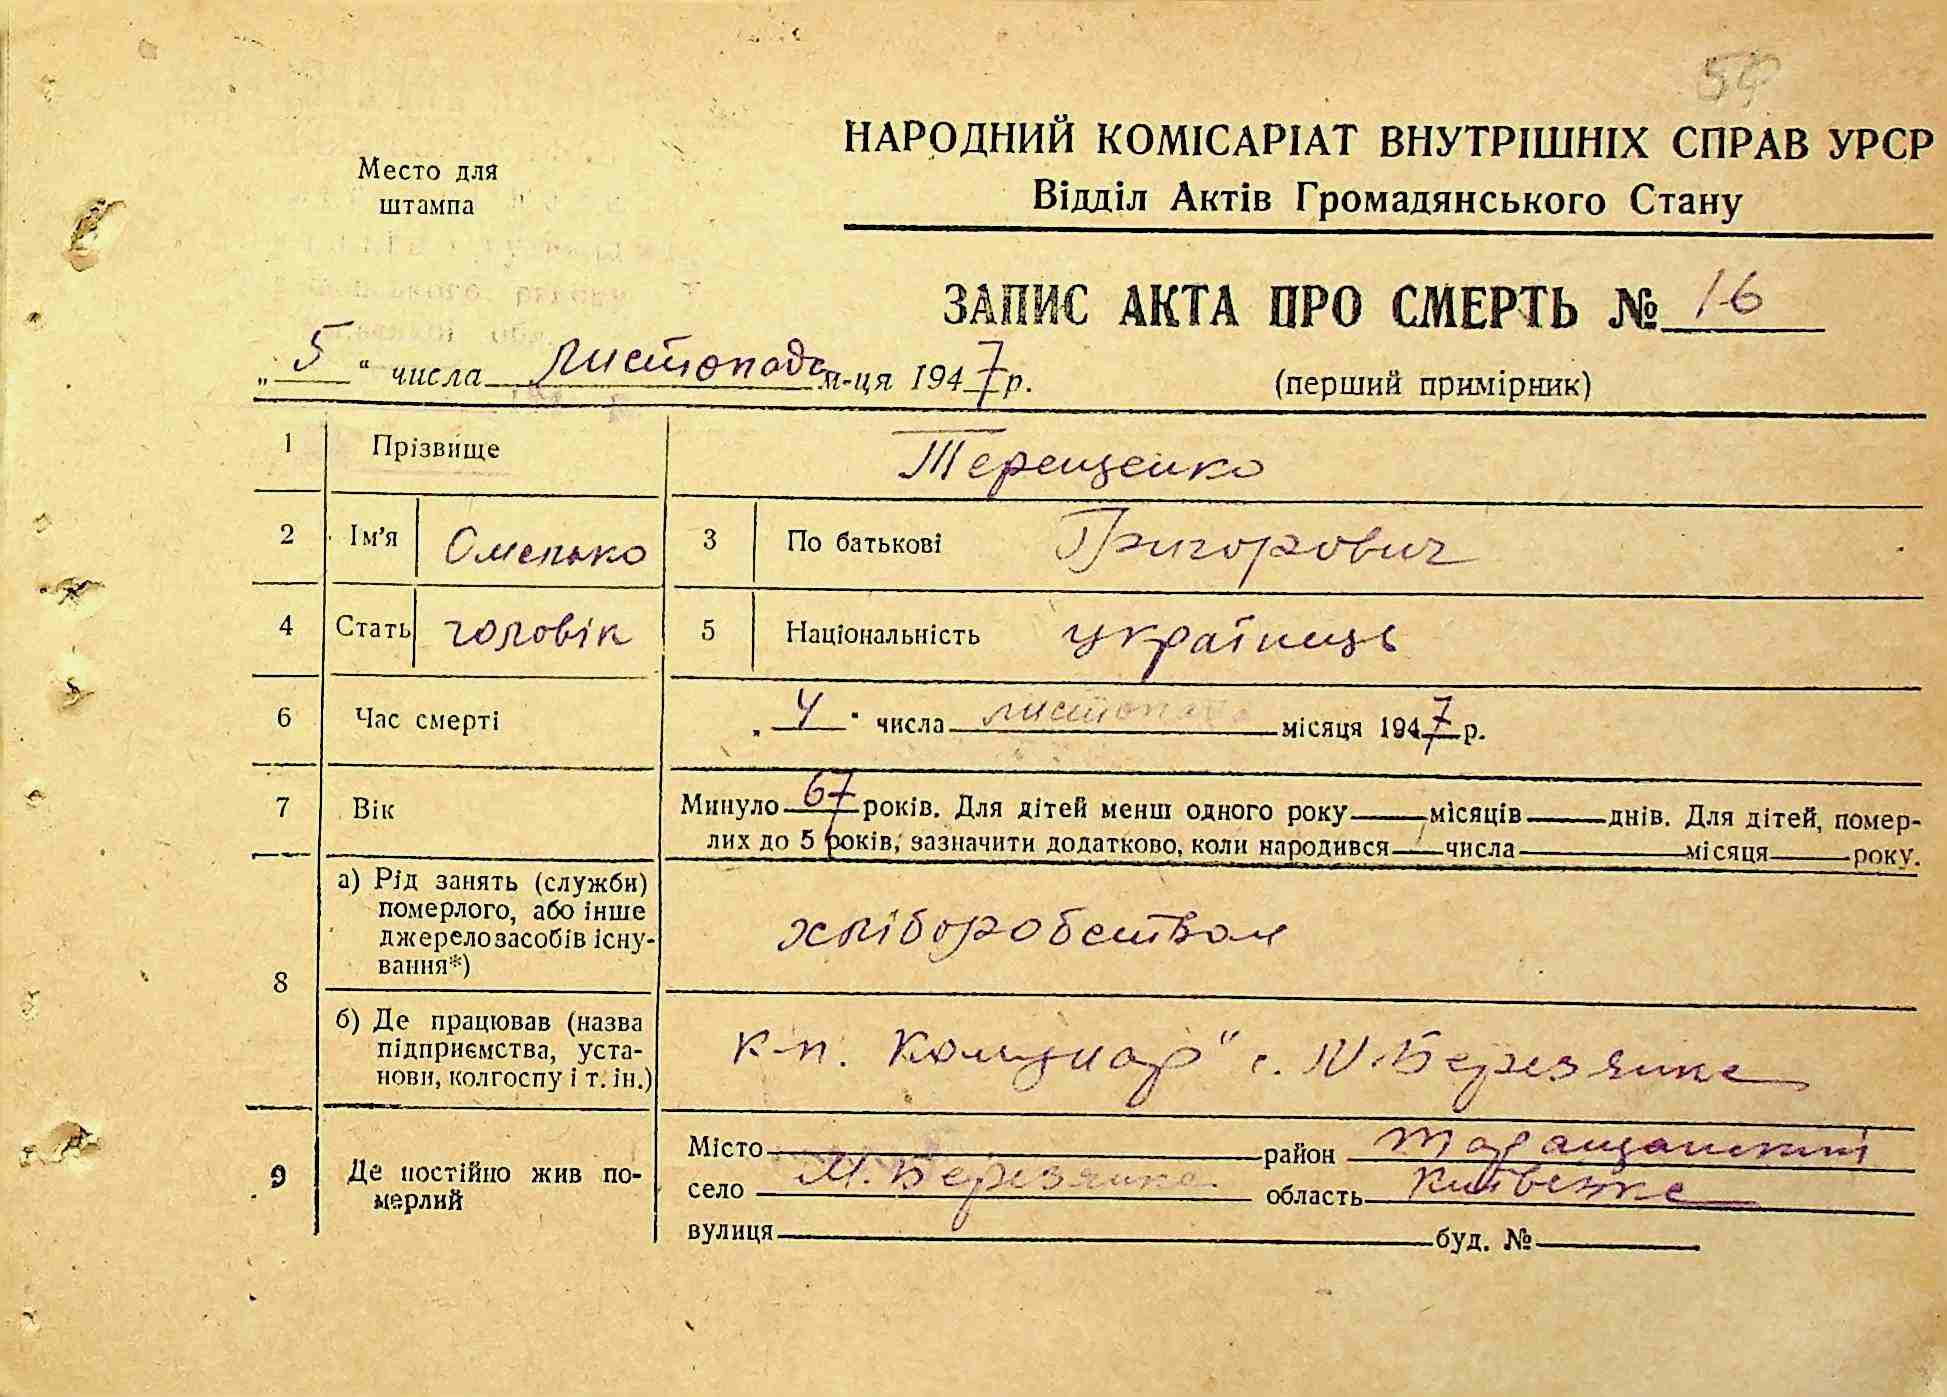 54
НАРОДНИЙ КОМІСАРІАТ ВНУТРІШНІХ СПРАВ УРСР
Відділ Актів Громадянського Стану
Место для
штампа
ЗАПИС АКТА ПРО СМЕРТЬ № 16
„5“ числа листопада м-ця 1947 р.
(перший примірник)
1 Прізвище Терещенко
2 Ім'я Омелько 3 По батькові Григорович
4 Стать чоловік 5 Національність українець
6 Час смерті „4“ числа листопада місяця 1947 р.
7 Вік Минуло 67 років. Для дітей менш одного року місяців днів. Для дітей, помер-
лих до 5 років, зазначити додатково, коли народився числа місяця року.
8 а) Рід занять (служби)
померлого, або інше
джерело засобів існу-
вання*)
хліборобством
б) Де працював (назва
підприємства, уста-
нови, колгоспу і т. ін.)
к-п. Комунар" с. М.Березянке
9 Де постійно жив по-
мерлий
Місто район Таращанский
село М.Березянке область Київське
вулиця буд. №